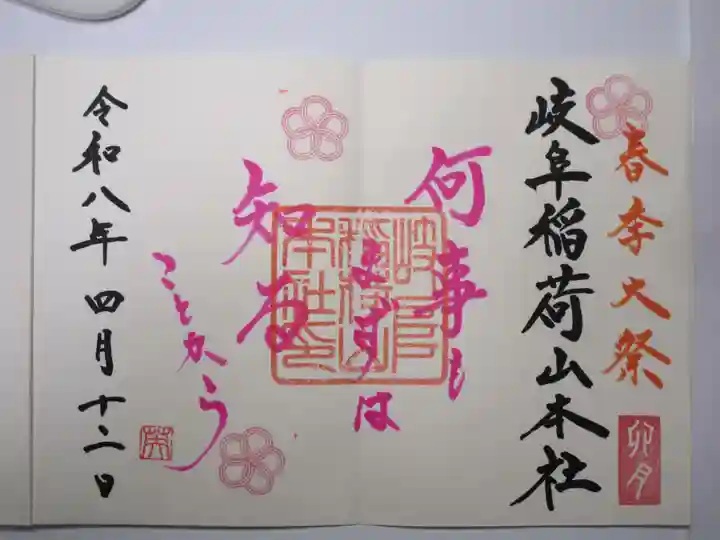 春季大祭
卯月
岐阜稲荷山本社
何事も
まずは
知る
ことから
岐阜稲荷山本社之印
令和八年四月十二日